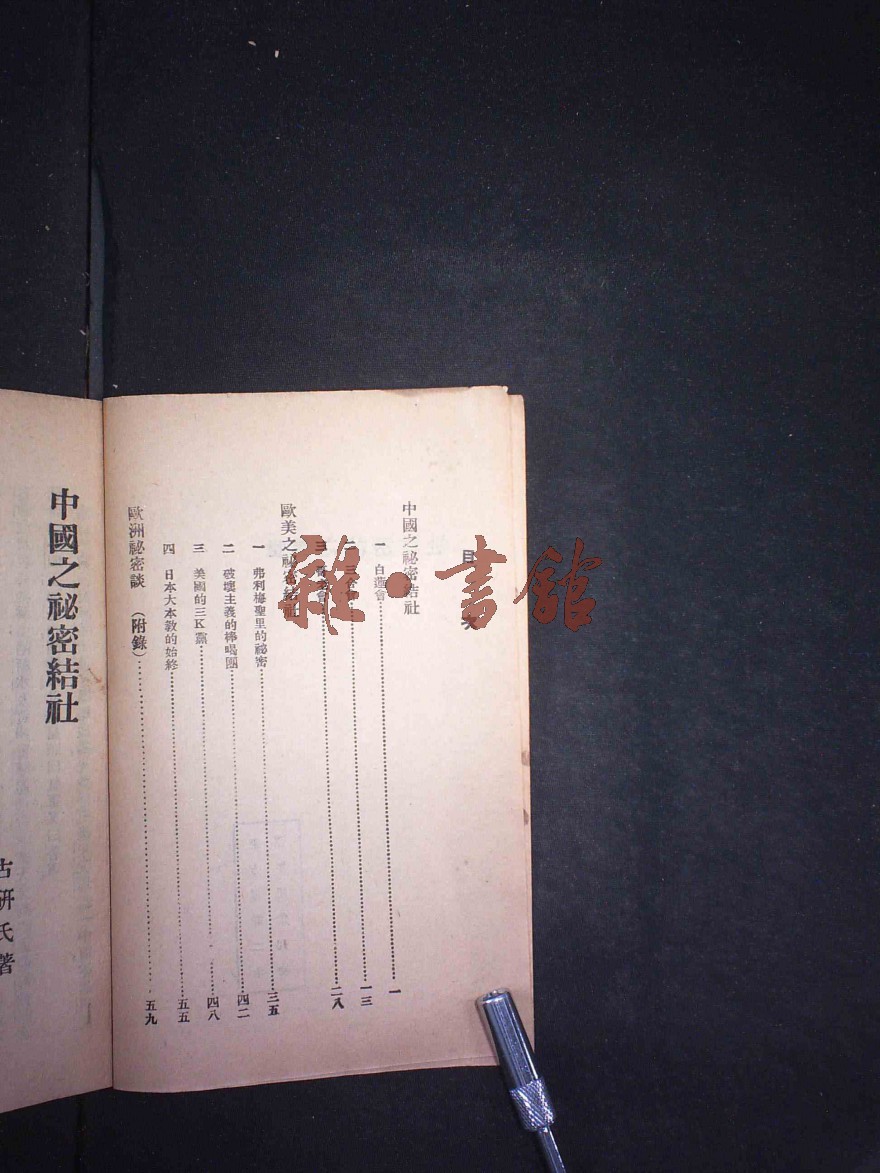 目次
中國之祕密結社
一 白蓮會……一
二 三合會……一三
三……二八
歐美之祕密結社
一 弗利梅聖里的祕密……三五
二 破壞主義的棒喝團……四二
三 美國的三K黨……四八
四 日本大本教的始終……五五
歐洲祕密談(附錄)……五九
中國之祕密結社
古研氏著
雜·書館